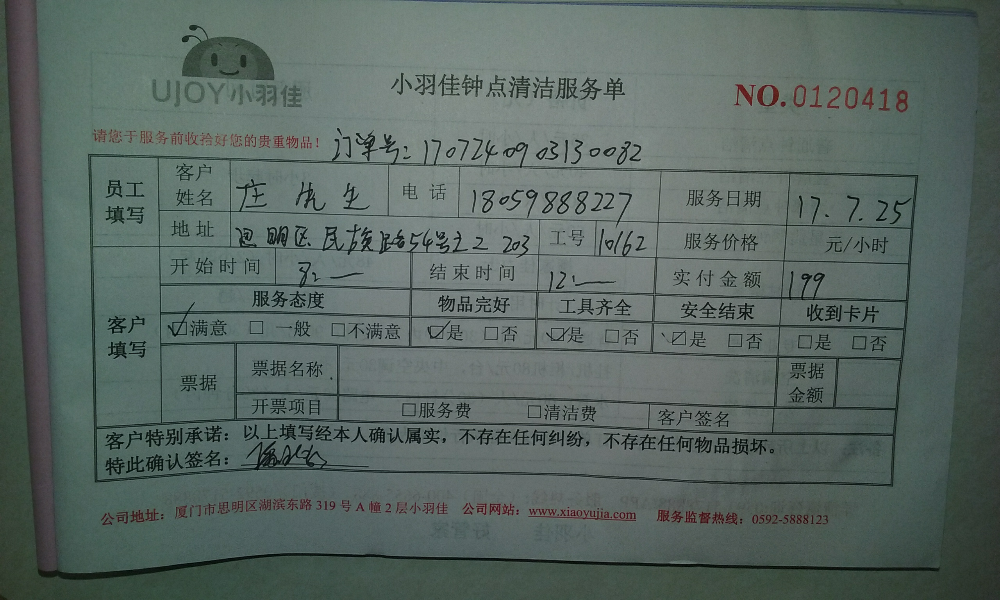 UJOY小羽佳
小羽佳钟点清洁服务单
NO.0120418
请您于服务前收拾好您的贵重物品！
订单号：1707240903130082
员工填写 客户姓名 庄先生 电话 18059888227 服务日期 17.7.25
地址 思明区民族路54号之2 203 工号 10162 服务价格 元/小时
客户填写 开始时间 8:— 结束时间 12:— 实付金额 199
服务态度 物品完好 工具齐全 安全结束 收到卡片
☑满意 □一般 □不满意 ☑是 □否 ☑是 □否 ☑是 □否 □是 □否
票据 票据名称 票据金额
开票项目 □服务费 □清洁费 客户签名
客户特别承诺：以上填写经本人确认属实，不存在任何纠纷，不存在任何物品损坏。
特此确认签名：
公司地址：厦门市思明区湖滨东路319号A幢2层小羽佳 公司网站：www.xiaoyujia.com 服务监督热线：0592-5888123